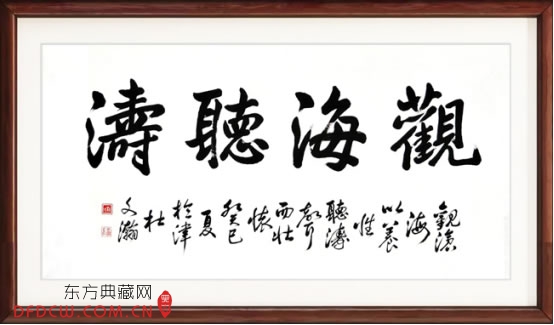 觀海聽濤
觀滄
海
以養
性
聽濤
聲
而壯
懷
癸巳
夏
於津
杜
文瀚
东方典藏网
DFDCW.COM.CN